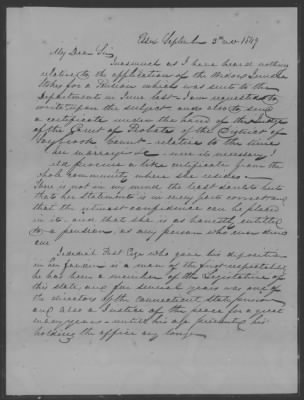 Essex September 3rd 1849
My Dear Sir
Inasmuch as I have heard nothing
relative to the application of the Widow
for a Pension which was sent to the
Department in June last I am requested to
write upon the subject and also to send
a certificate under the hand of the Judge
of the Court of Probate of the District of
Saybrook Connt relative to the time
her marriage &c were it necessary I
could procure a certificate from the
whole Community where she resides
There is not in my mind the least doubt but
that her Statement is in every particular correct and
that the utmost confidence can be placed
in it and that she is as honestly entitled
to a pension as any person who ever drew
one
who gave his deposition
in her favor is a man of the first respectability
he has been a member of the Legislature of
this state, and for several years was one of
the directors of the Connecticut State prison
and also a Justice of the peace for a great
many years until his age prevented his
holding the office any longer